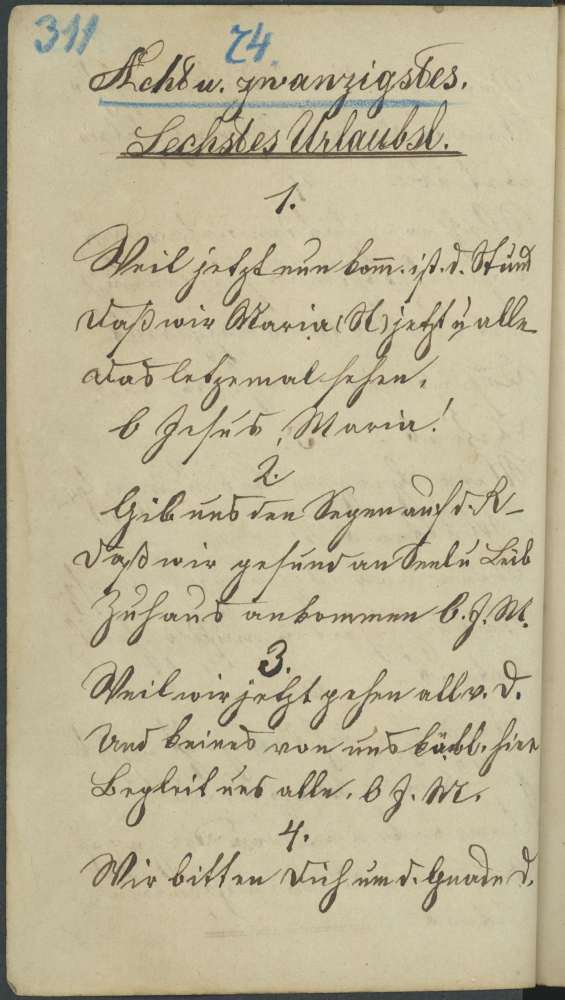 311
74.
Acht u. zwanzigstes.
Sechstes Urlaubsl.
1.
Weil jetzt nun kom̅. ist. d. Stund
Daß wir Maria (M) jetzt u alle
das letzemal sehen,
O Jesus, Maria!
2.
Gib uns den Segen auf d. R–
Daß wir gesund an Seel u Leib
Zuhaus ankommen O. J. M.
3.
Weil wir jetzt gehen all v. D.
Und keines von uns hier
Begleit uns alle. O J. M.
4.
Wir bitten Dich um d. Gnade d.